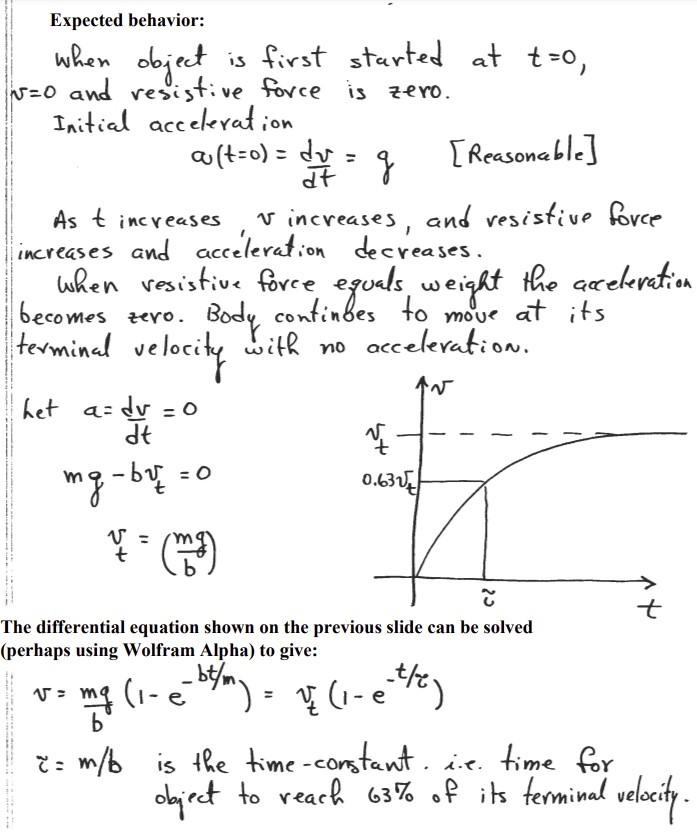 Expected behavior:
When object is first started at t=0,
v=0 and resistive force is zero.
Initial acceleration
a(t=0) = dv/dt = g [Reasonable]
As t increases, v increases, and resistive force
increases and acceleration decreases.
When resistive force equals weight the acceleration
becomes zero. Body continues to move at its
terminal velocity with no acceleration.
Let a = dv/dt = 0
mg - bv_t = 0
v_t = (mg/b)
v
v_t
0.63v_t
τ
t
The differential equation shown on the previous slide can be solved
(perhaps using Wolfram Alpha) to give:
v = mg/b (1 - e^-bt/m) = v_t (1 - e^-t/τ)
τ = m/b is the time-constant. i.e. time for
object to reach 63% of its terminal velocity.